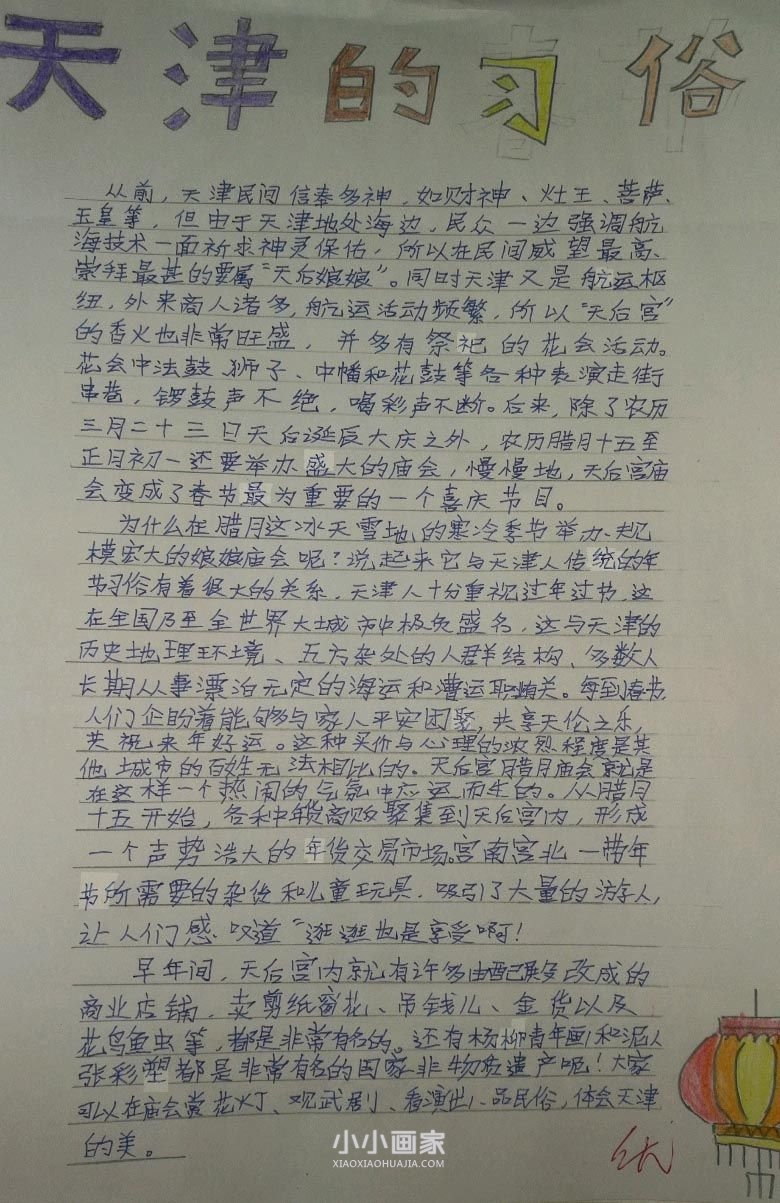 天津的习俗
从前，天津民间信奉多神，如财神、灶王、菩萨、
玉皇等，但由于天津地处海边，民众一边强调航
海技术一面祈求神灵保佑，所以在民间威望最高、
崇拜最甚的要属“天后娘娘”。同时天津又是航运枢
纽，外来商人诸多，航运活动频繁，所以“天后宫”
的香火也非常旺盛，并多有祭祀的花会活动。
花会中法鼓、狮子、中幡和花鼓等各种表演走街
串巷，锣鼓声不绝，喝彩声不断。后来，除了农历
三月二十三日天后诞辰大庆之外，农历腊月十五至
正月初一还要举办盛大的庙会，慢慢地，天后宫庙
会变成了春节最为重要的一个喜庆节目。
为什么在腊月这冰天雪地的寒冷季节举办规
模宏大的娘娘庙会呢？说起来它与天津人传统的年
节习俗有着很大的关系，天津人十分重视过年过节，这
在全国乃至全世界大城市中极负盛名，这与天津的
历史地理环境、五方杂处的人群结构、多数人
长期从事漂泊无定的海运和漕运职业有关。每到春节
人们企盼着能够与家人平安团聚，共享天伦之乐，
共祝来年好运。这种环价与心理的浓烈程度是其
他城市的百姓无法相比的。天后宫腊月庙会就是
在这样一个热闹的气氛中应运而生的。从腊月
十五开始，各种年货商贩聚集到天后宫内，形成
一个声势浩大的年货交易市场。宫南宫北一带年
节所需要的杂货和儿童玩具，吸引了大量的游人，
让人们感叹道“逛逛也是享受啊！
早年间，天后宫内就有许多由配殿改成的
商业店铺，卖剪纸窗花、吊钱儿、金货以及
花鸟鱼虫等，都是非常有名的。还有杨柳青年画和泥人
张彩塑都是非常有名的国家非物质遗产呢！大家
可以在庙会赏花灯、观武剧、看演出、品民俗，体会天津
的美。
优
小小画家
XIAOXIAOHUAJIA.COM